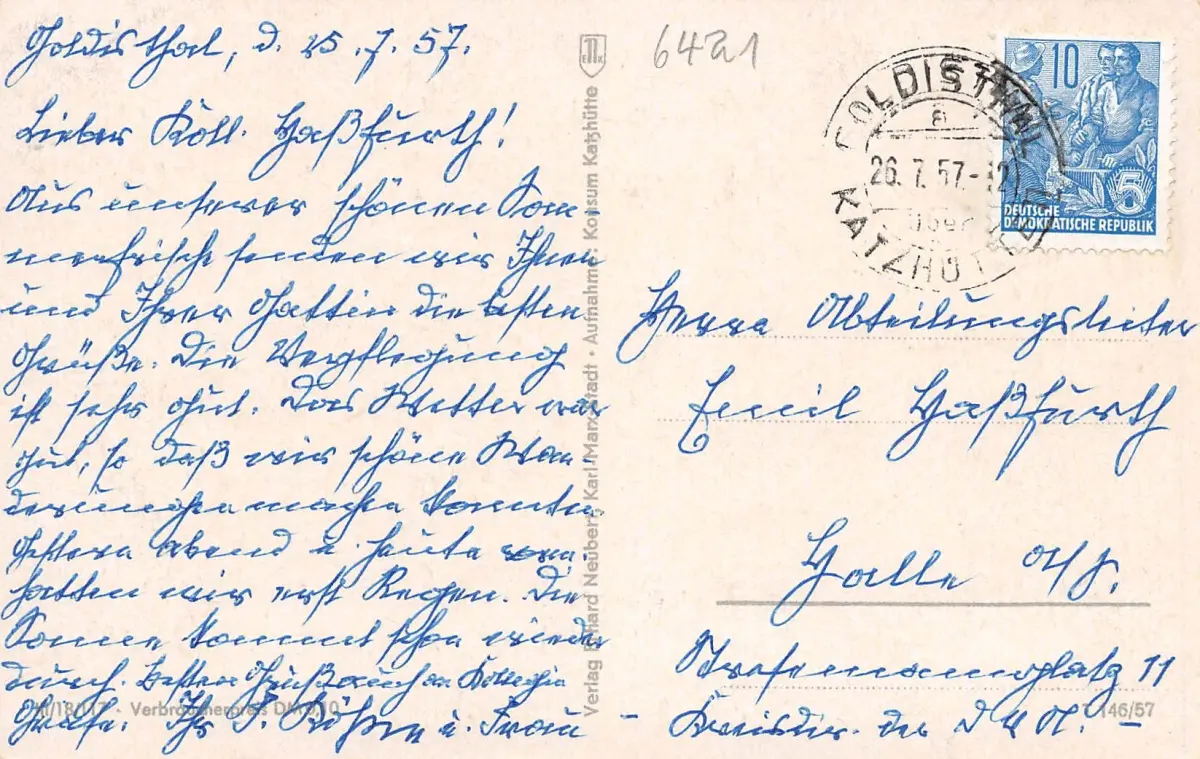 Goldisthal, d. 25.7.57.
Lieber Koll. Haßfurth!
Aus unserer schönen Som-
merfrische senden wir Ihnen
und Ihrer Gattin die besten
Grüße. Die Verpflegung
ist sehr gut. Das Wetter war
gut, so daß wir schöne Wan-
derungen machen konnten.
Gestern abend u. heute vorm.
hatten wir erst Regen. Die
Sonne kommt schon wieder
durch. Besten Gruß auch an Kollegin
Ihr u. Frau
III/18/117 · Verbraucherpreis DM 0,10
Verlag Erhard Neubert, Karl-Marx-Stadt · Aufnahme: Konsum Katzhütte
6421
GOLDISTHAL
a
26.7.57-12
über
KATZHÜTTE
10
5
DEUTSCHE
DEMOKRATISCHE REPUBLIK
Herrn Abteilungsleiter
Emil Haßfurth
Halle a/S.
Stresemannplatz 11
- Kreisdir. der D V A. -
T 146/57